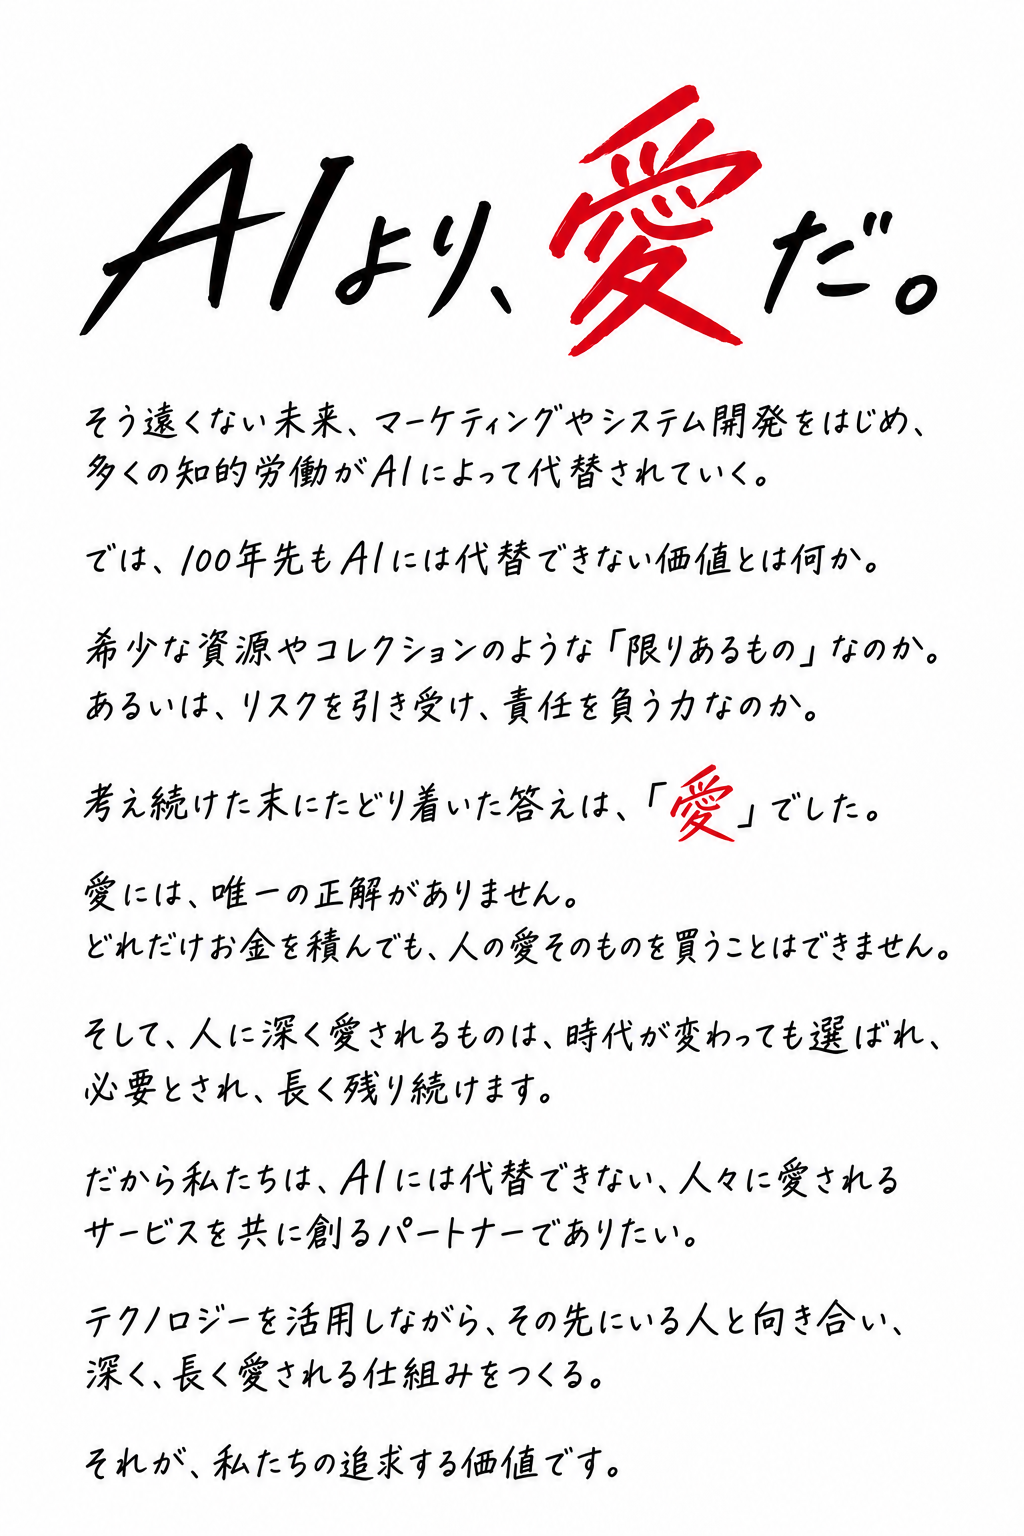 AIより、愛だ。
そう遠くない未来、マーケティングやシステム開発をはじめ、
多くの知的労働がAIによって代替されていく。
では、100年先もAIには代替できない価値とは何か。
希少な資源やコレクションのような「限りあるもの」なのか。
あるいは、リスクを引き受け、責任を負う力なのか。
考え続けた末にたどり着いた答えは、「愛」でした。
愛には、唯一の正解がありません。
どれだけお金を積んでも、人の愛そのものを買うことはできません。
そして、人に深く愛されるものは、時代が変わっても選ばれ、
必要とされ、長く残り続けます。
だから私たちは、AIには代替できない、人々に愛される
サービスを共に創るパートナーでありたい。
テクノロジーを活用しながら、その先にいる人と向き合い、
深く、長く愛される仕組みをつくる。
それが、私たちの追求する価値です。